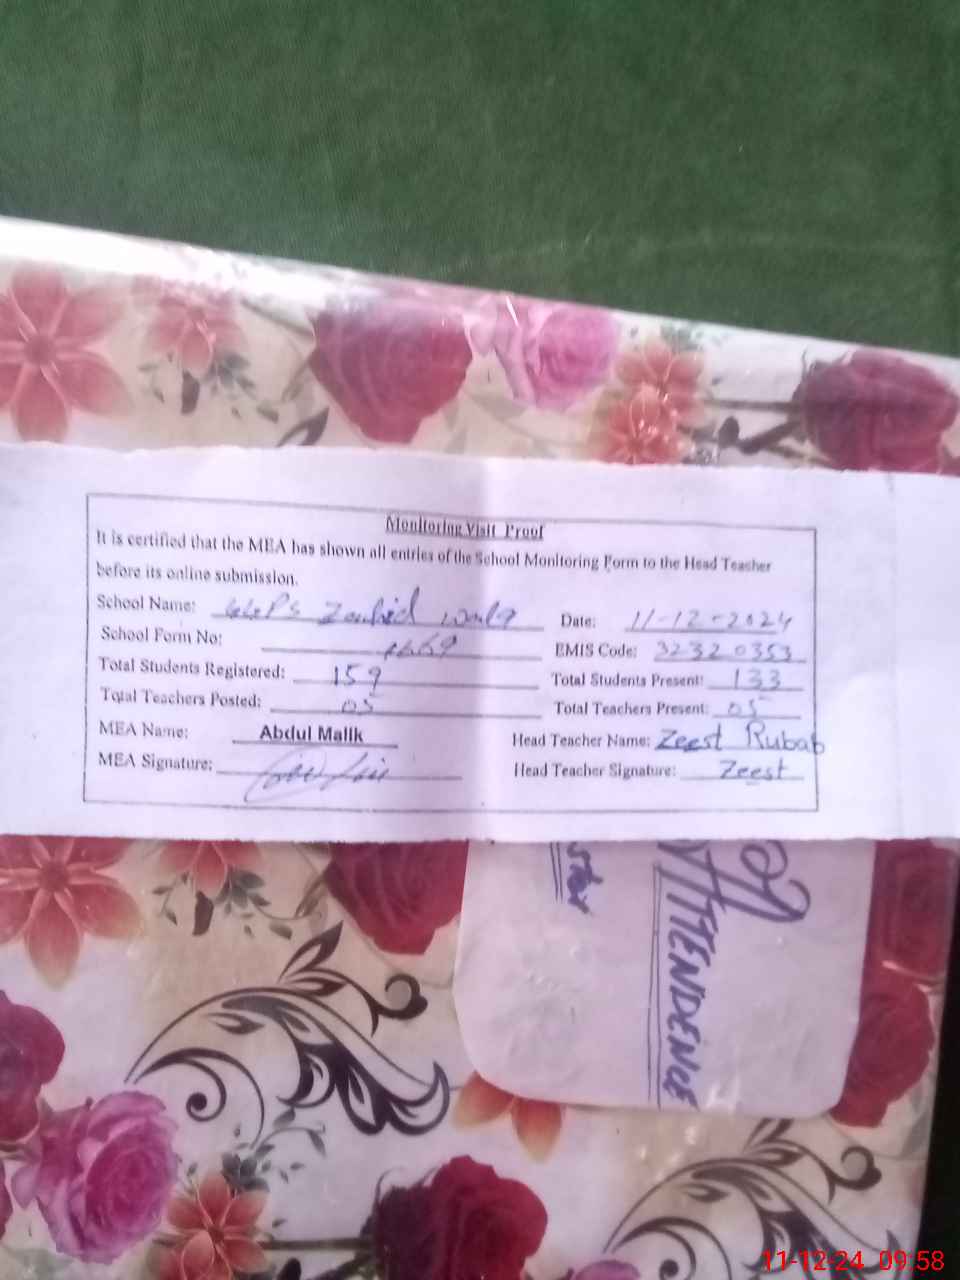 Monitoring Visit Proof
It is certified that the MEA has shown all entries of the School Monitoring Form to the Head Teacher
before its online submission.
School Name: GGPS Date: 11-12-2024
School Form No: EMIS Code: 32320353
Total Students Registered: 159 Total Students Present: 133
Total Teachers Posted: 05 Total Teachers Present: 05
MEA Name: Abdul Malik Head Teacher Name: Zeest Rubab
MEA Signature: Head Teacher Signature: Zeest
ATTENDENCE
11-12-24 09:58